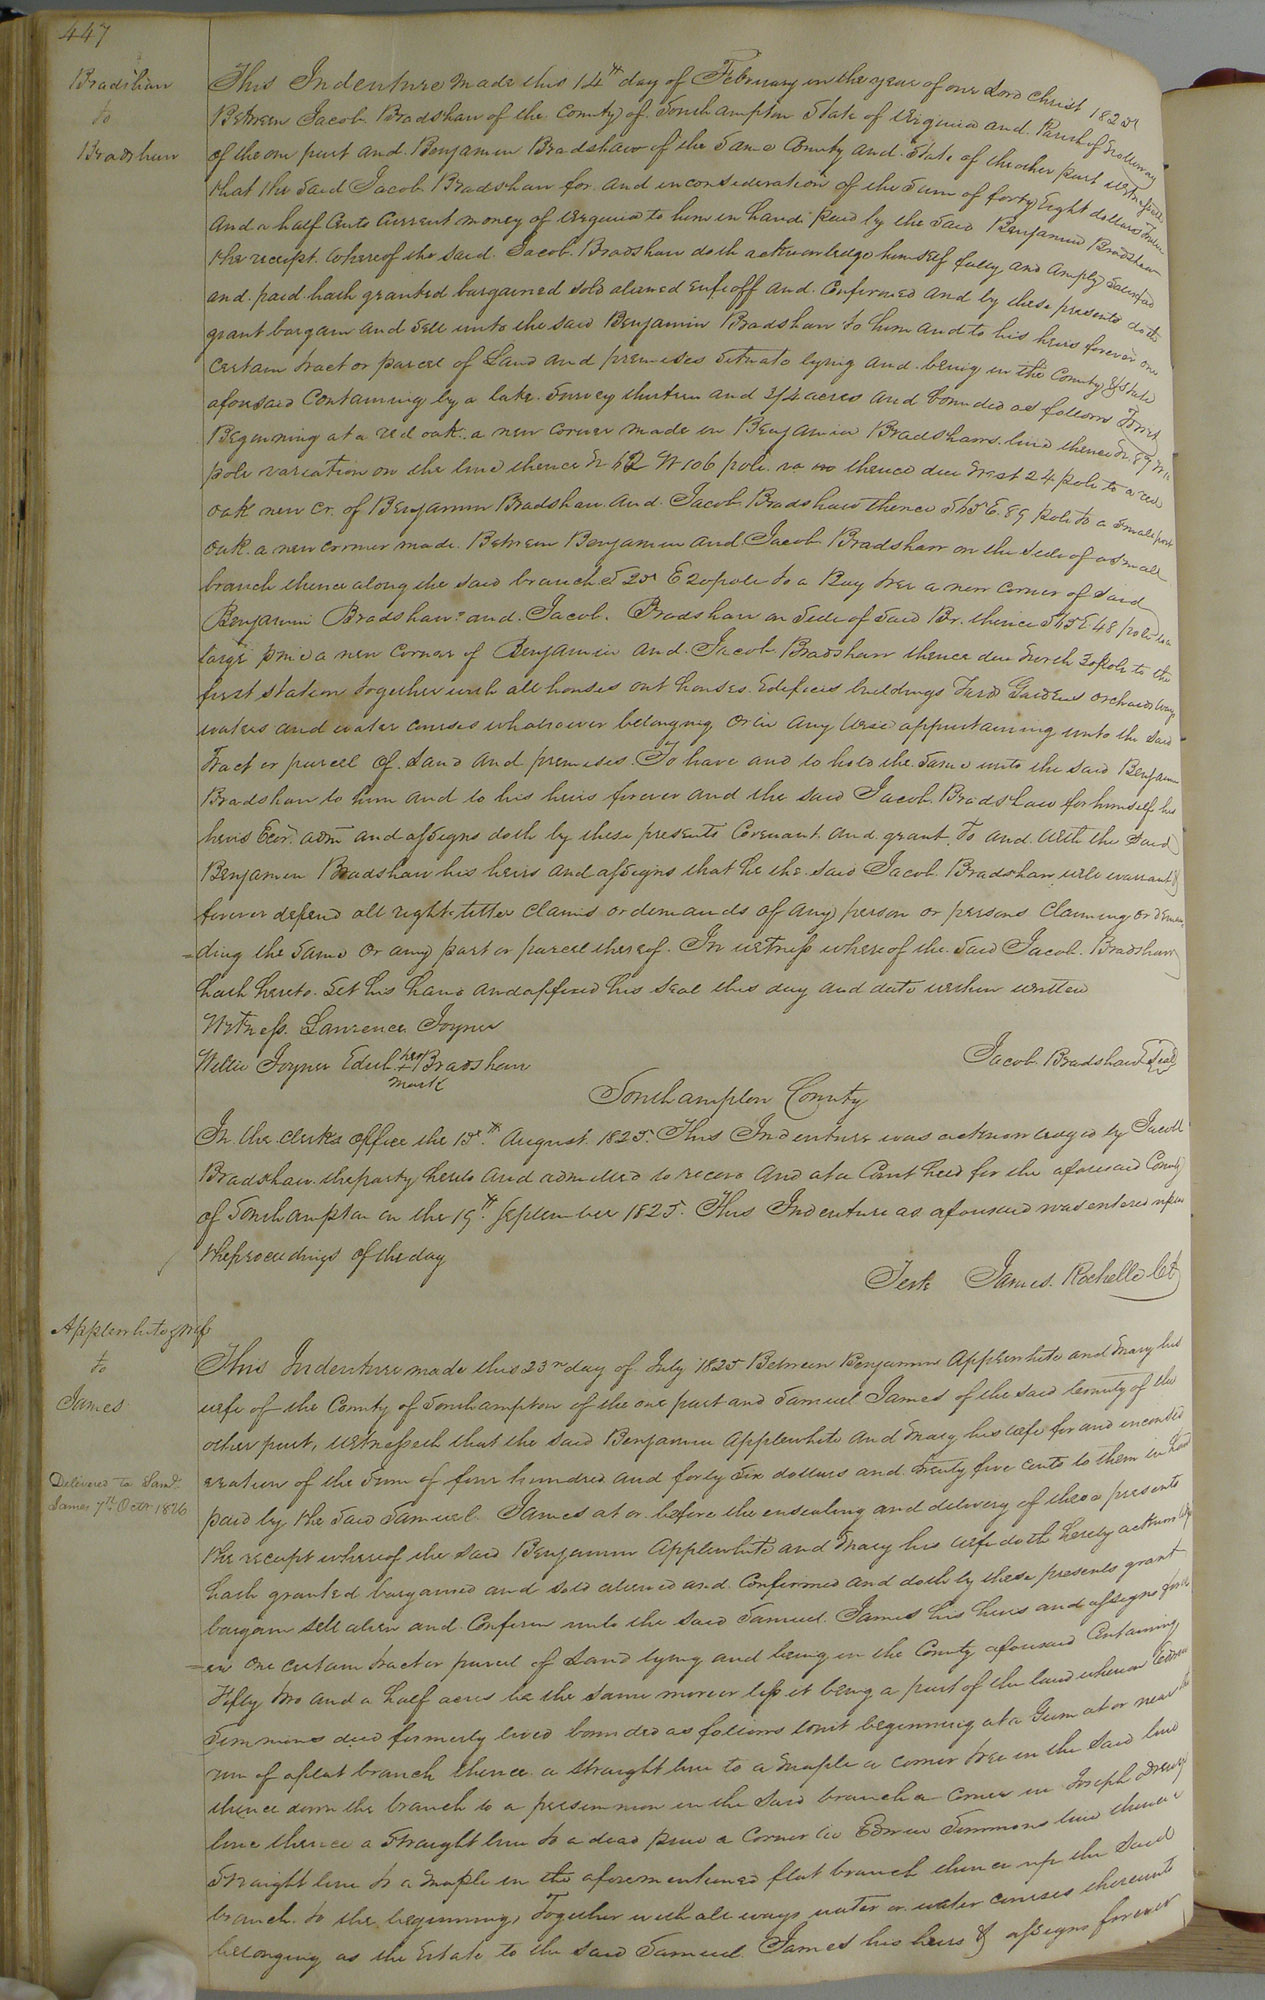 447
Bradshaw
to
Bradshaw
This Indenture made this 14th day of February in the year of our Lord Christ 1825
Between Jacob Bradshaw of the County of Southampton State of Virginia and Parish of Nottoway
of the one part and Benjamin Bradshaw of the Same County and State of the other part Witnesseth
that the Said Jacob Bradshaw for and in consideration of the Sum of forty Eight dollars
and a half Cents Current money of Virginia to him in hand paid by the Said Benjamin Bradshaw
the receipt Whereof the said Jacob Bradshaw doth acknowledge himself fully and Amply Satisfied
and paid hath granted bargained sold aliened enfeoff and Confirmed and by these presents doth
grant bargain and Sell unto the said Benjamin Bradshaw to him and to his heirs forever one
Certain tract or parcel of Land and premises Situate lying and being in the County & State
aforesaid Containing by a late Survey thirteen and 3/4 acres and bounded as follows
Beginning at a red oak a new corner made in Benjamin Bradshaws line thence
pole variation on the line thence N 42 W 106 pole thence due West 24 pole to a red
oak new cr. of Benjamin Bradshaw and Jacob Bradshaw thence S 45 E 89 pole to a Small post
oak a new corner made Between Benjamin and Jacob Bradshaw on the Side of a Small
branch thence along the said branch S 25 E 20 pole to a Bay tree a new corner of Said
Benjamin Bradshaw and Jacob Bradshaw on Side of Said Br. thence S 45 E 48 pole to a
large pine a new corner of Benjamin and Jacob Bradshaw thence due North 30 pole to the
first station together with all houses out houses Edifices buildings Yards Gardens Orchards Ways
waters and water courses whatsoever belonging or in any Wise appertaining unto the Said
Tract or parcel of Land and premises. To have and to hold the Same unto the said Benjamin
Bradshaw to him and to his heirs forever and the said Jacob Bradshaw for himself his
heirs Ecor. adm and assigns doth by these presents Covenant and grant to and With the Said
Benjamin Bradshaw his heirs and assigns that he the said Jacob Bradshaw will warrant &
forever defend all right titter claims or demands of any person or persons Claiming or Deman
=ding the Same or any part or parcel thereof. In witness whereof the Said Jacob Bradshaw
hath hereto Set his hand and affixed his Seal this day and date within written
Witness. Lawrence Joyner
Willie Joyner Edith her + mark Bradshaw
Jacob Bradshaw Seal
Southampton County
In the clerks office the 15th August 1825. This Indenture was acknowledged by Jacob
Bradshaw the party hereto and admitted to record And at a Court held for the aforesaid County
of Southampton on the 19th September 1825. This Indenture as aforesaid was entered upon
the proceedings of the day
Teste James Rochelle Ct
Applewhite & wife
to
James
Delivered to Saml.
James 7th Octr 1826
This Indenture made this 23rd day of July 1825 Between Benjamin Applewhite and Mary his
wife of the County of Southampton of the one part and Samuel James of the said County of the
other part, Witnesseth that the said Benjamin Applewhite and Mary his wife for and in consid
eration of the Sum of four hundred and forty Six dollars and twenty five cents to them in hand
paid by the Said Samuel James at or before the ensealing and delivery of these presents
the receipt whereof the said Benjamin Applewhite and Mary his wife doth hereby acknowledge
hath granted bargained and sold aliened and Confirmed and doth by these presents grant
bargain sell alien and Confirm unto the said Samuel James his heirs and assigns forev
=er One certain tract or parcel of Land lying and being in the County aforesaid Containing
Fifty two and a half acres be the same more or less it being a part of the land whereon Edwin
Simmons decd formerly lived bounded as follows towit beginning at a Gum at or near the
run of a flat branch thence a straight line to a Maple a corner tree in the said line
thence down the branch to a persimmon in the Said branch a corner in Joseph Drewry
line thence a straight line to a dead pine a corner in Edwin Simmons line thence a
Straight line to a Maple in the aforementioned flat branch thence up the Said
branch to the beginning, Together with all ways water or water courses thereunto
belonging as the Estate to the said Samuel James his heirs & assigns forever